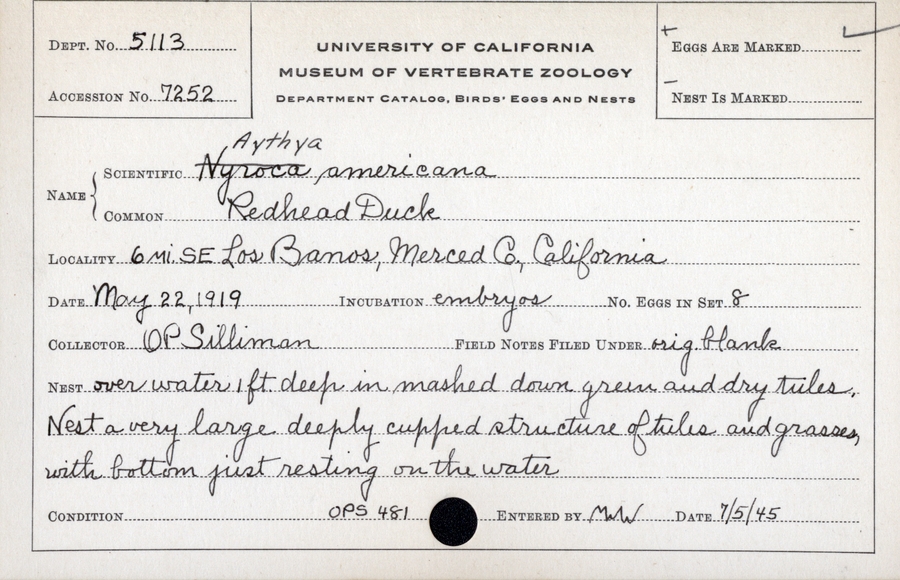 DEPT. No. 5113
ACCESSION No. 7252
UNIVERSITY OF CALIFORNIA
MUSEUM OF VERTEBRATE ZOOLOGY
DEPARTMENT CATALOG, BIRDS' EGGS AND NESTS
+ EGGS ARE MARKED
– NEST IS MARKED
Aythya
NAME { SCIENTIFIC Nyroca americana
COMMON Redhead Duck
LOCALITY 6 mi. SE Los Banos, Merced Co, California
DATE May 22, 1919 INCUBATION embryos No. EGGS IN SET 8
COLLECTOR OP Silliman FIELD NOTES FILED UNDER orig. blank
NEST over water 1 ft deep in mashed down green and dry tules.
Nest a very large deeply cupped structure of tules and grasses,
with bottom just resting on the water
CONDITION OPS 481 ENTERED BY MW DATE 7/5/45